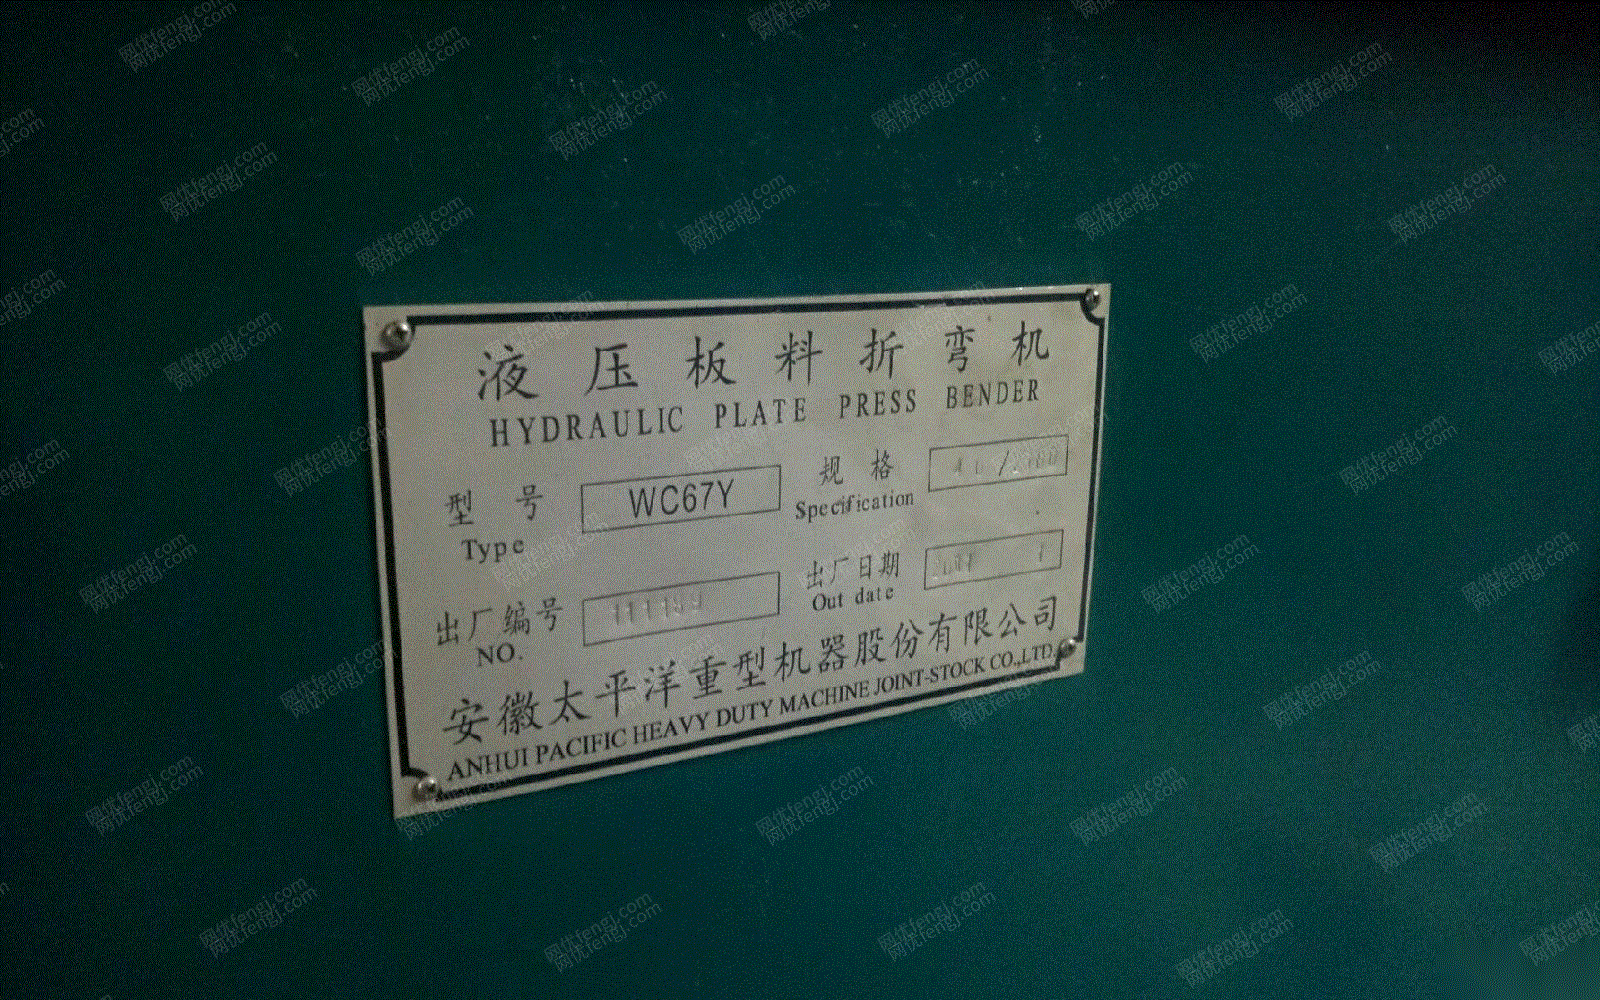 液压板料折弯机
HYDRAULIC PLATE PRESS BENDER
型号 WC67Y 规格
Type Specification
出厂编号 出厂日期
NO. Out date
安徽太平洋重型机器股份有限公司
ANHUI PACIFIC HEAVY DUTY MACHINE JOINT-STOCK CO.,LTD.
网优fengj.com